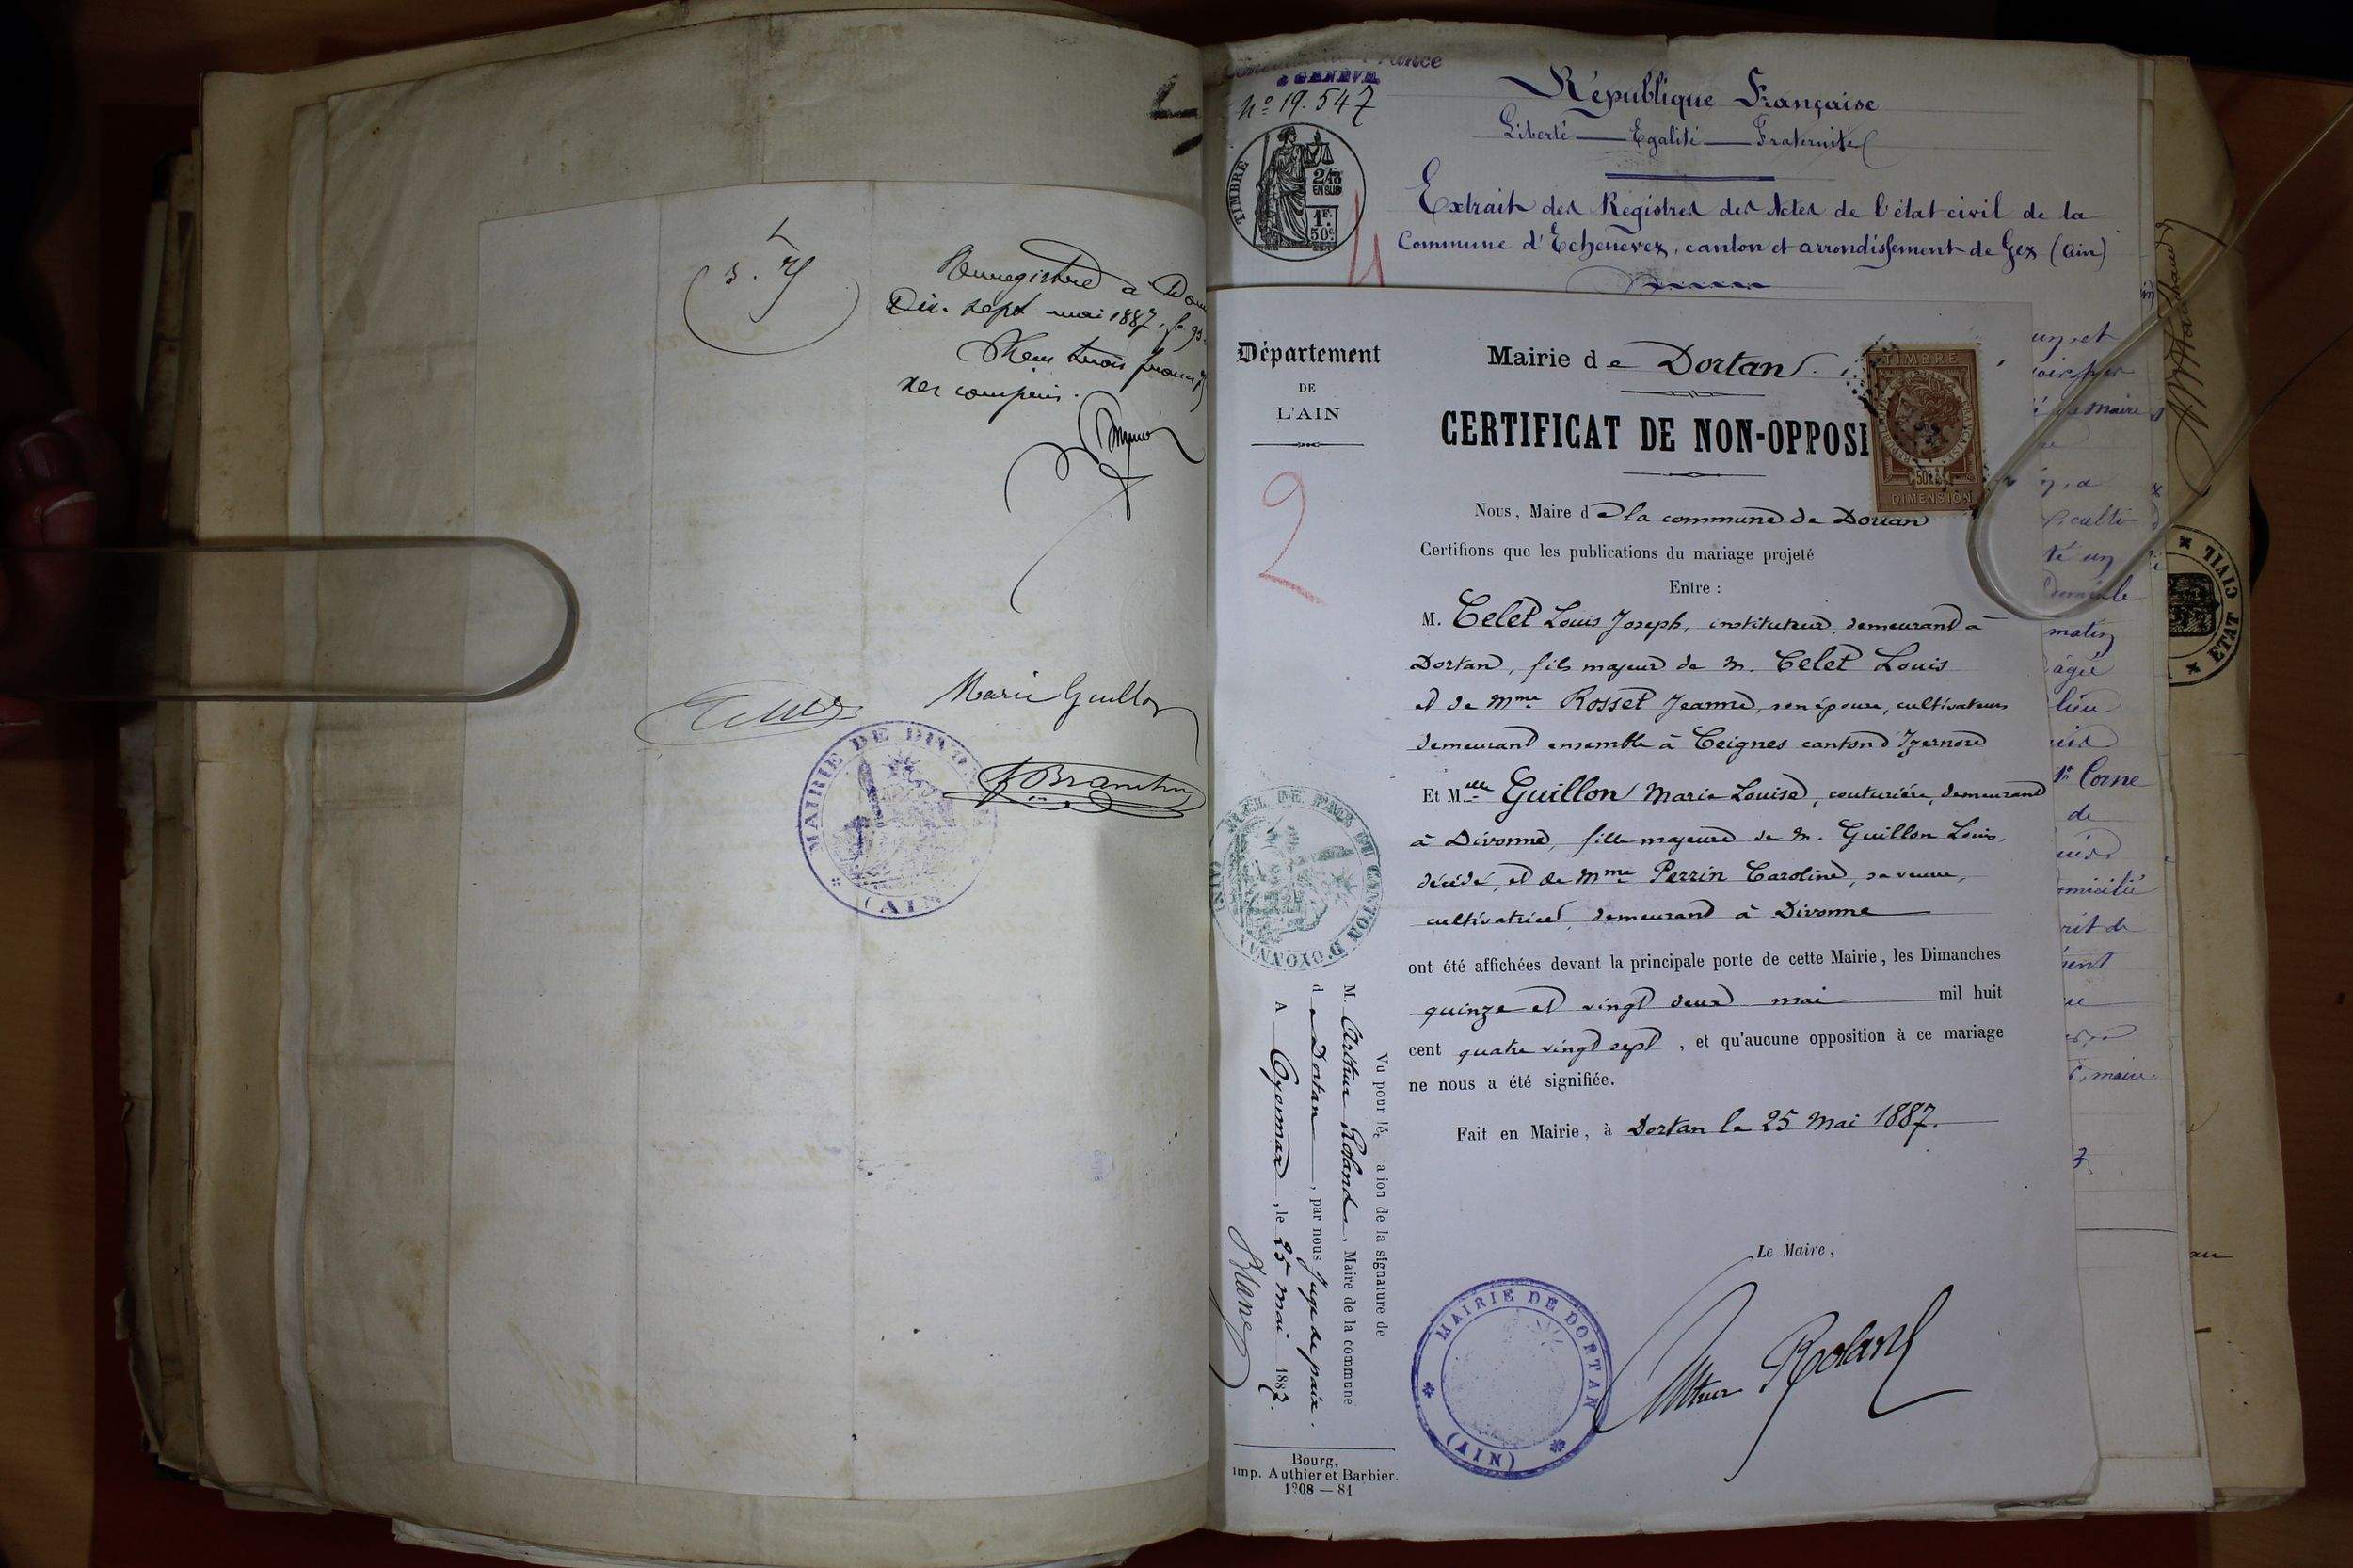 3. 75
Enregistré à
Dix-sept mai 1887, fo 93
trois francs
Marie Guillon
MAIRIE DE DIVONNE
(AIN)
France
à GENÈVE
No 19.547
TIMBRE
2/10
EN SUS
1F.
50c.
République Française
Liberté — Egalité — Fraternité
Extrait des Registres des Actes de l'état civil de la
Commune d'Echenevex, canton et arrondissement de Gex (Ain)
Département
DE
L'AIN
2
Mairie de Dortan.
TIMBRE
DIMENSION
CERTIFICAT DE NON-OPPOSI
Nous, Maire de la commune de Dortan
Certifions que les publications du mariage projeté
Entre :
M. Celet Louis Joseph, instituteur, demeurant à
Dortan, fils majeur de M. Celet Louis
et de Mme Rosset Jeanne, son épouse, cultivateurs
demeurant ensemble à Ceignes canton d'Izernore
Et Melle Guillon Marie Louise, couturière, demeurant
à Divonne, fille majeure de M. Guillon Louis,
décédé, et de Mme Perrin Caroline, sa veuve,
cultivatrice, demeurant à Divonne
ont été affichées devant la principale porte de cette Mairie, les Dimanches
quinze et vingt deux mai mil huit
cent quatre vingt sept, et qu'aucune opposition à ce mariage
ne nous a été signifiée.
Fait en Mairie, à Dortan le 25 Mai 1887.
Le Maire,
Arthur Roland
MAIRIE DE DORTAN
(AIN)
Vu pour lé a ion de la signature de
M. Arthur Roland, Maire de la commune
de Dortan, par nous Juge de paix.
A Oyonnax, le 25 mai 1887.
CANTON D'OYONNAX
Bourg,
Imp. Authier et Barbier.
1208 — 81
maire
matin
âgée
lieu
Corne
de
maire
ETAT CIVIL